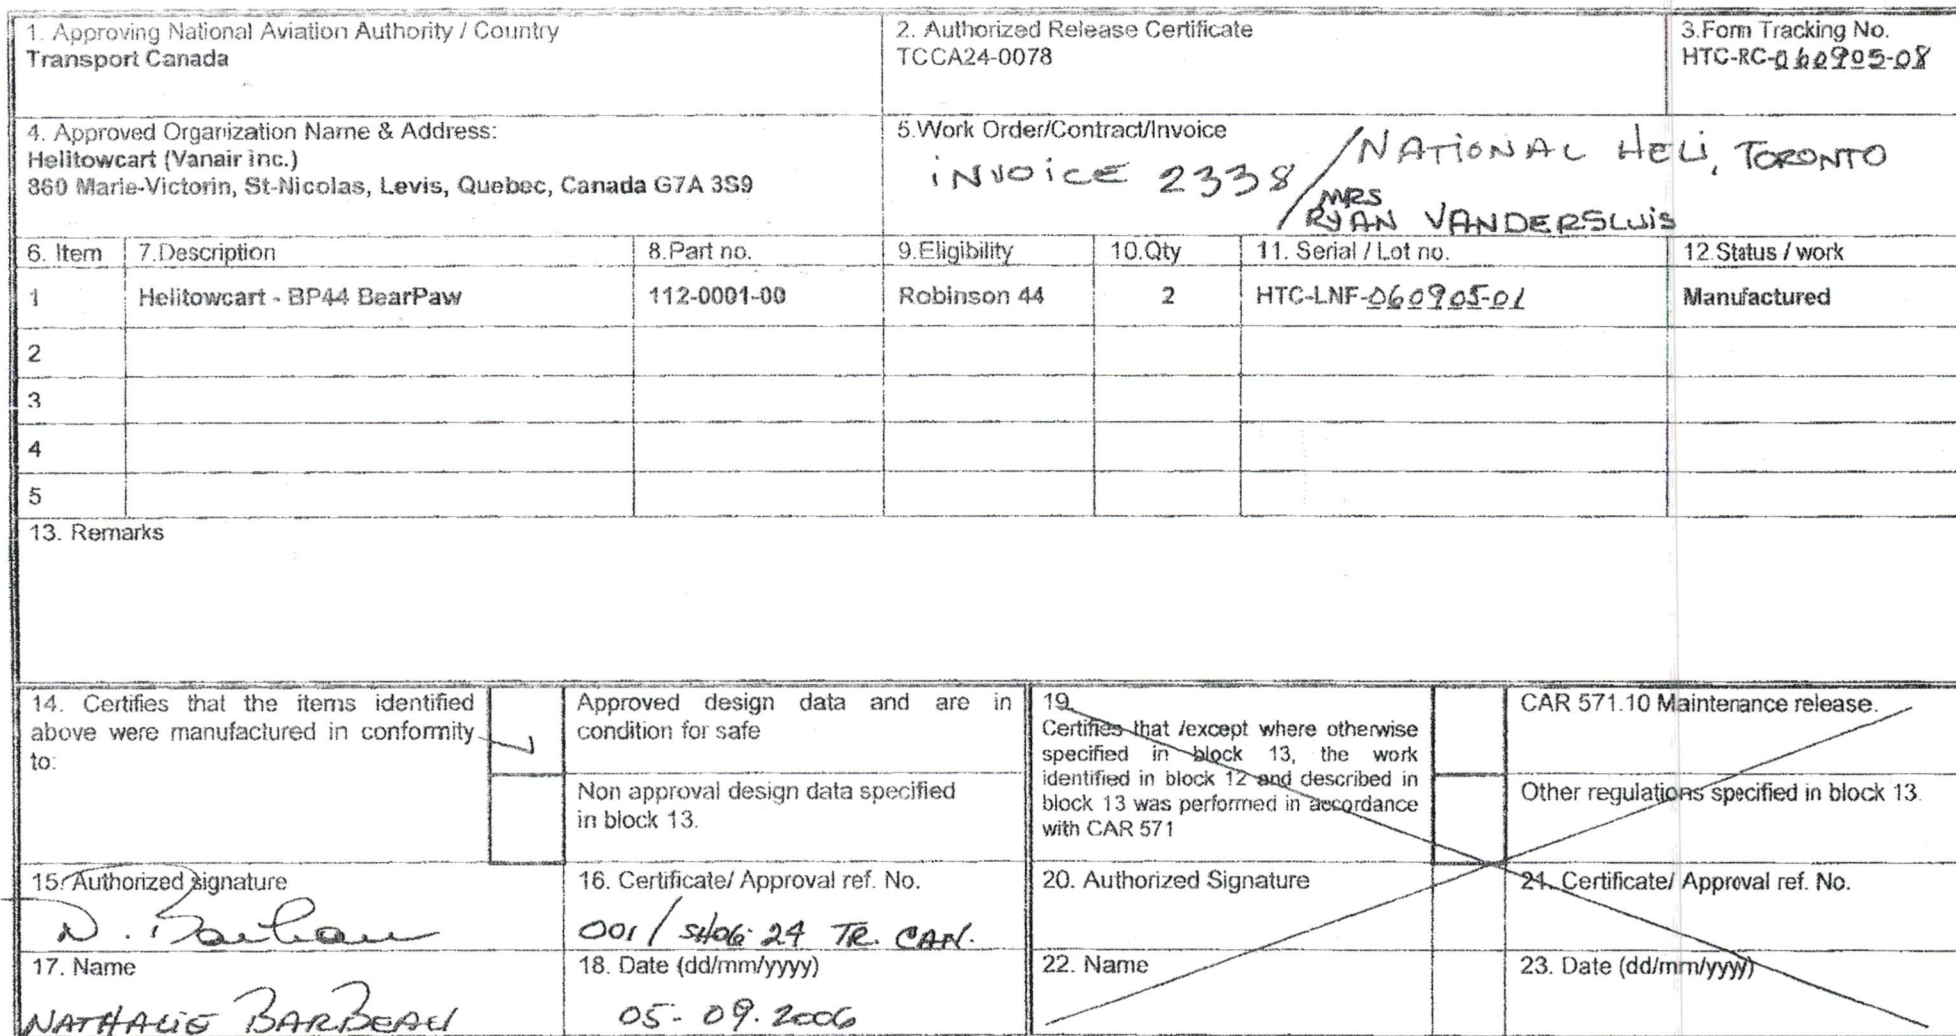 1. Approving National Aviation Authority / Country
Transport Canada
2. Authorized Release Certificate
TCCA24-0078
3.Form Tracking No.
HTC-RC-060905-08
4. Approved Organization Name & Address:
Helitowcart (Vanair inc.)
860 Marie-Victorin, St-Nicolas, Levis, Quebec, Canada G7A 3S9
5.Work Order/Contract/Invoice
INVOICE 2338 / NATIONAL HELI, TORONTO
/ MRS
RYAN VANDERSLUIS
6. Item 7.Description 8.Part no. 9.Eligibility 10.Qty 11. Serial / Lot no. 12.Status / work
1 Helitowcart - BP44 BearPaw 112-0001-00 Robinson 44 2 HTC-LNF-060905-01 Manufactured
2
3
4
5
13. Remarks
14. Certifies that the items identified
above were manufactured in conformity
to:
Approved design data and are in
condition for safe
Non approval design data specified
in block 13.
19.
Certifies that /except where otherwise
specified in block 13, the work
identified in block 12 and described in
block 13 was performed in accordance
with CAR 571
CAR 571.10 Maintenance release.
Other regulations specified in block 13.
15. Authorized signature
N. Barbeau
16. Certificate/ Approval ref. No.
001/ SH06-24 TR. CAN.
20. Authorized Signature
21. Certificate/ Approval ref. No.
17. Name
NATHALIE BARBEAU
18. Date (dd/mm/yyyy)
05-09.2006
22. Name
23. Date (dd/mm/yyyy)